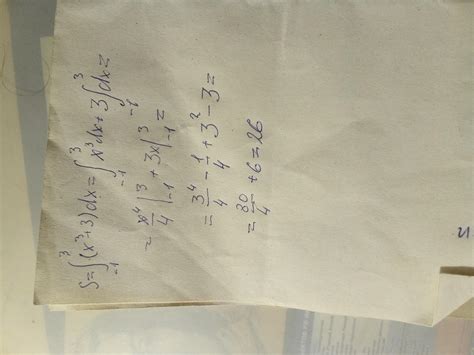 S = ∫₋₁³ (x³+3) dx = ∫₋₁³ x³ dx + 3 ∫₋₁³ dx =
= x⁴/4 |₋₁³ + 3x |₋₁³ =
= 3⁴/4 - 1/4 + 3² - 3 =
= 80/4 + 6 = 26